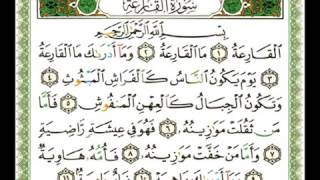 سورة القارعة
بِسْمِ اللَّهِ الرَّحْمَٰنِ الرَّحِيمِ
الْقَارِعَةُ ١ مَا الْقَارِعَةُ ٢ وَمَا أَدْرَاكَ مَا الْقَارِعَةُ
٣ يَوْمَ يَكُونُ النَّاسُ كَالْفَرَاشِ الْمَبْثُوثِ ٤
وَتَكُونُ الْجِبَالُ كَالْعِهْنِ الْمَنفُوشِ ٥ فَأَمَّا
مَن ثَقُلَتْ مَوَازِينُهُ ٦ فَهُوَ فِي عِيشَةٍ رَّاضِيَةٍ
٧ وَأَمَّا مَنْ خَفَّتْ مَوَازِينُهُ ٨ فَأُمُّهُ هَاوِيَةٌ
٩ وَمَا أَدْرَاكَ مَا هِيَهْ ١٠ نَارٌ حَامِيَةٌ ١١